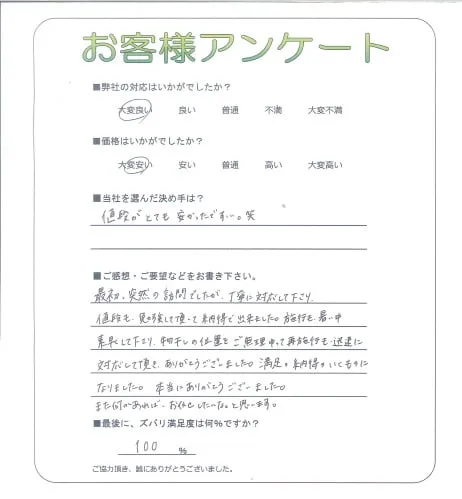 お客様アンケート
■弊社の対応はいかがでしたか？
大変良い 良い 普通 不満 大変不満
■価格はいかがでしたか？
大変安い 安い 普通 高い 大変高い
■当社を選んだ決め手は？
値段がとても安かったです。笑
■ご感想・ご要望などをお書き下さい。
最初、突然の訪問でしたが、丁寧に対応して下さり
値段も、見積して頂いて納得で出来ました。施行も、暑い中
素早して下さり、物干しの位置をご無理申して再施行も迅速に
対応して頂き、ありがとうございました。満足。納得のいくものに
なりました。本当にありがとうございました。
また何かあれば、お任せしたいな。と思います。
■最後に、ズバリ満足度は何％ですか？
100 %
ご協力頂き、誠にありがとうございました。